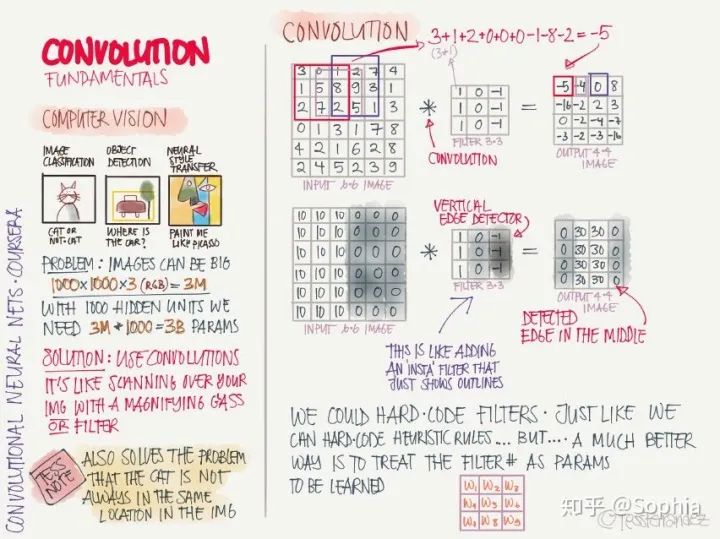 CONVOLUTION
FUNDAMENTALS
COMPUTER VISION
IMAGE CLASSIFICATION
OBJECT DETECTION
NEURAL STYLE TRANSFER
CAT OR NOT-CAT
WHERE IS THE CAR?
PAINT ME LIKE PICASSO
PROBLEM: IMAGES CAN BE BIG
1000×1000×3 (RGB) = 3M
WITH 1000 HIDDEN UNITS WE
NEED 3M*1000=3B PARAMS
SOLUTION: USE CONVOLUTIONS
IT'S LIKE SCANNING OVER YOUR
IMG WITH A MAGNIFYING GASS
OR FILTER
TESS NOTE
ALSO SOLVES THE PROBLEM
THAT THE CAT IS NOT
ALWAYS IN THE SAME
LOCATION IN THE IMG
CONVOLUTIONAL NEURAL NETS·COURSERA
CONVOLUTION
3+1+2+0+0+0-1-8-2=-5
(3*1)
3 0 1 2 7 4
1 5 8 9 3 1
2 7 2 5 1 3
0 1 3 1 7 8
4 2 1 6 2 8
2 4 5 2 3 9
INPUT 6·6 IMAGE
*
CONVOLUTION
1 0 -1
1 0 -1
1 0 -1
FILTER 3×3
=
-5 -4 0 8
-16 -2 2 3
0 -2 -4 -7
-3 -2 -3 -16
OUTPUT 4·4
IMAGE
10 10 10 0 0 0
10 10 10 0 0 0
10 10 10 0 0 0
10 10 10 0 0 0
10 10 10 0 0 0
10 10 10 0 0 0
INPUT 6·6 IMAGE
*
VERTICAL
EDGE DETECTOR
1 0 -1
1 0 -1
1 0 -1
FILTER 3×3
=
0 30 30 0
0 30 30 0
0 30 30 0
0 30 30 0
OUTPUT 4·4
IMAGE
DETECTED
EDGE IN THE MIDDLE
THIS IS LIKE ADDING
AN 'INSTA' FILTER THAT
JUST SHOWS OUTLINES
WE COULD HARD·CODE FILTERS · JUST LIKE WE
CAN HARD·CODE HEURISTIC RULES... BUT.... A MUCH BETTER
WAY IS TO TREAT THE FILTER # AS PARAMS
TO BE LEARNED
W1 W2 W3
W4 W5 W6
W7 W8 W9
知乎 @Sophia
©TessFerrandez